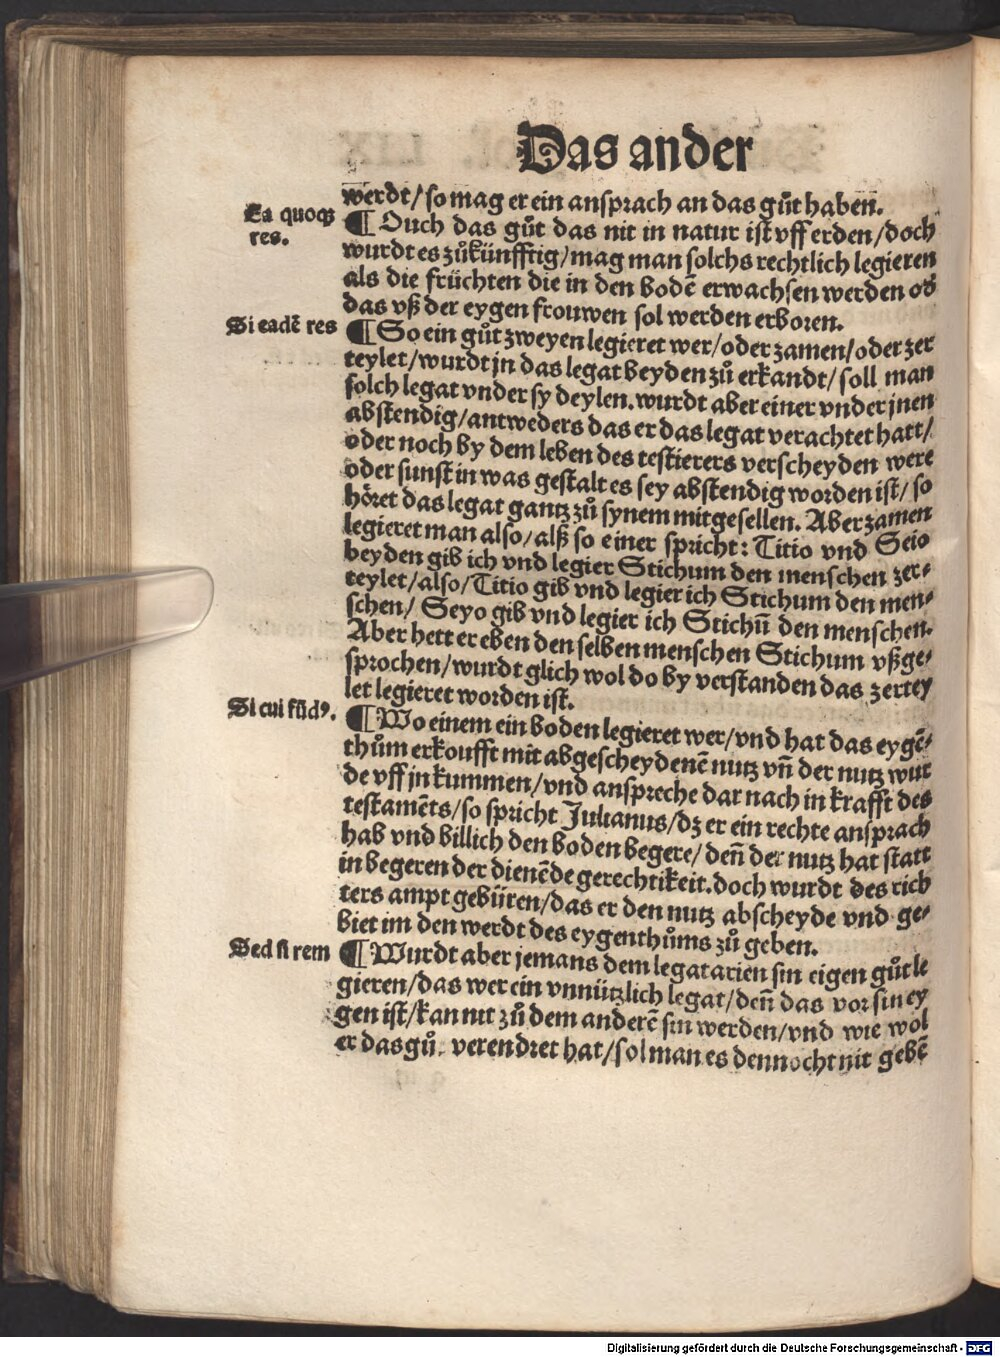 Das ander
werdt/ so mag er ein ansprach an das gůt haben.
Ea quoqꝫ
res.
¶ Ouch das gůt das nit in natur ist vff erden/doch
wurdt es zůkünfftig/mag man solchs rechtlich legieren
als die früchten die in den bodē erwachsen werden od̕
das vß der eygen frouwen sol werden erboren.
Si eadē res
¶ So ein gůt zweyen legieret wer/oder zamen/oder zer
teylet/wurdt jn das legat beyden zů erkandt/ soll man
solch legat vnder sy deylen. wurdt aber einer vnder jnen
abstendig/antweders das er das legat verachtet hatt/
oder noch by dem leben des testierers verscheyden were
oder sunst in was gestalt es sey abstendig worden ist/ so
höret das legat gantz zů synem mitgesellen. Aber zamen
legieret man also/alß so einer spricht: Titio vnd Seio
beyden gib ich vnd legier Stichum den menschen zer⸗
teylet/also/Titio gib vnd legier ich Stichum den men⸗
schen/ Seyo gib vnd legier ich Stichū den menschen.
Aber hett er eben den selben menschen Stichum vßge⸗
sprochen/wurdt glich wol do by verstanden das zertey
let legieret worden ist.
Si cui fūdꝰ.
¶ Wo einem ein boden legieret wer/vnd hat das eygē⸗
thům erkoufft mit abgescheydenē nutz vñ der nutz wur
de vff jn kummen/vnd anspreche dar nach in krafft des
testamēts/so spricht Julianus/dz er ein rechte ansprach
hab vnd billich den boden begere/deñ der nutz hat statt
in begeren der dienēde gerechtikeit. doch wurdt des rich
ters ampt gebüren/das er den nutz abscheyde vnd ge⸗
biet im den werdt des eygenthůms zů geben.
Sed si rem
¶ Wurdt aber jemans dem legatarien sin eigen gůt le
gieren/das wer ein vnnützlich legat/deñ das vor sin ey
gen ist/kan nit zů dem anderē sin werden/vnd wie wol
er das gů. verendret hat/sol man es dennocht nit gebē
Digitalisierung gefördert durch die Deutsche Forschungsgemeinschaft - DFG